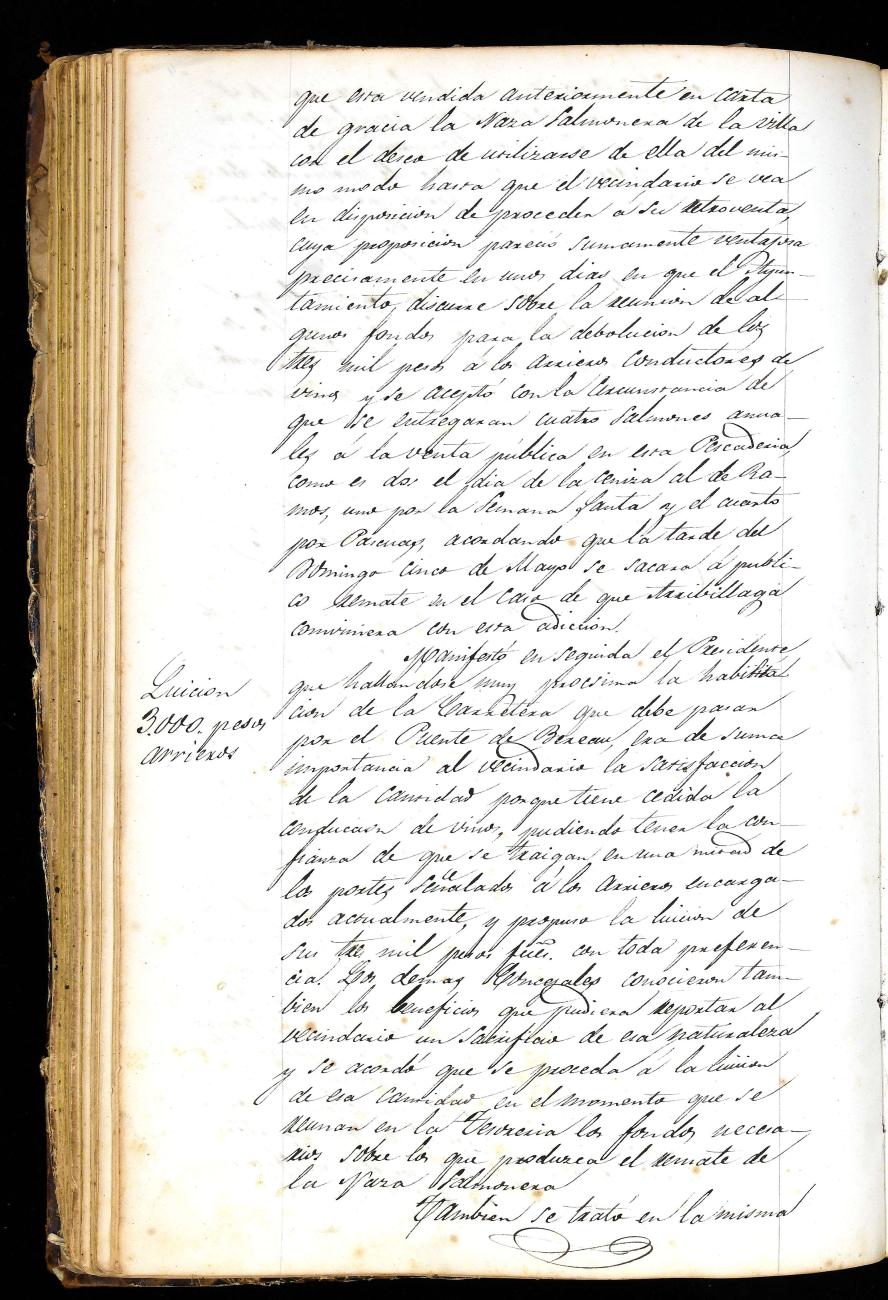 que esta vendida anteriormente en carta
de gracia la Naza Salmonera de la villa
con el deseo de utilizarse de ella del mis-
mo modo hasta que el vecindario se vea
en disposicion de proceder a su retroventa,
cuya proposicion pareció sumamente ventajosa
precisamente en unos dias en que el Ayun-
tamiento, discurre sobre la reunion de al-
gunos fondos para la debolucion de los
tres mil pesos á los arrieros conductores de
vino, y se aceptó con la circunstancia de
que se entregaran cuatro Salmones anua-
les á la venta pública en esta Pescaderia,
como es dos el dia de la ceniza al de Ra-
mos, uno por la Semana Santa y el cuarto
por Pascuas, acordando que la tarde del
Domingo cinco de Mayo se sacara á publi-
co remate en el caso de que Arribillaga
conviniera con esta adiccion.
Manifestó en seguida el Presidente
Luicion
3.000. pesos
arrieros
que hallandose muy procsima la habilita
cion de la Carretera que debe pasar
por el Puente de Bereau, era de suma
importancia al vecindario la satisfaccion
de la cantidad porque tiene cedida la
conducion de vinos, pudiendo tener la con-
fianza de que se traigan en una mitad de
los portes señalados á los arrieros encarga-
dos actualmente, y propuso la luicion de
sus tres mil pesos fues. con toda preferen-
cia. Los demas Concejales conocieron tam-
bien los beneficios que pudiera reportar al
vecindario un sacrificio de esa naturaleza
y se acordó que se proceda á la luicion
de esa cantidad en el momento que se
reunan en la Tesoreria los fondos necesa-
rios sobre los que produzca el remate de
la Naza Salmonera
Tambien se trató en la misma